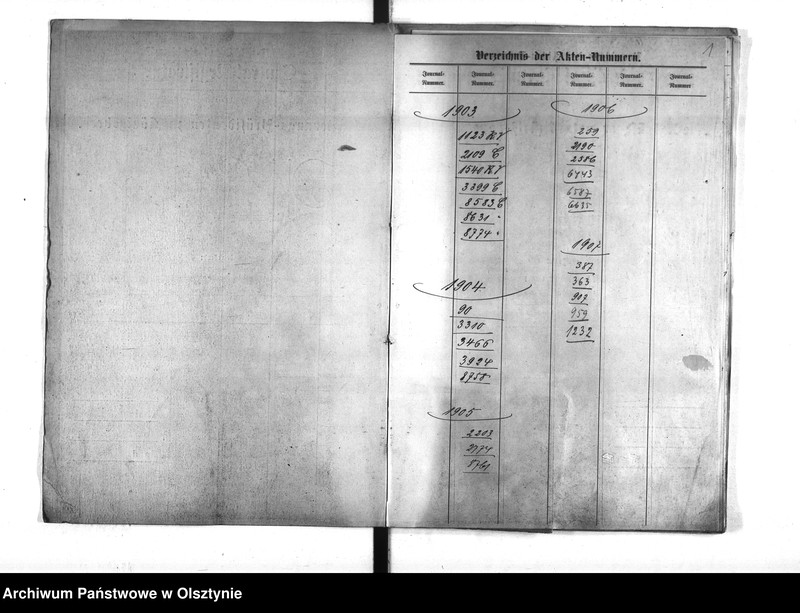 1
Verzeichnis der Akten-Nummern.
Journal-Nummer. Journal-Nummer. Journal-Nummer. Journal-Nummer. Journal-Nummer. Journal-Nummer
1903
1123
2109 C
1540
3399 C
8583 C
8631 "
8774 "
1904
90
3310
3466
3924
8758
1905
2203
3774
1906
209
2190
2386
6443
6587
6635
1907
387
363
907
959
1232
Archiwum Państwowe w Olsztynie